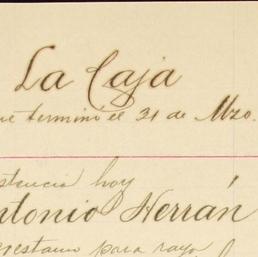 La Caja
que terminó el 31 de Mzo.
stencia hoy
ntonio Herrán
para rayo